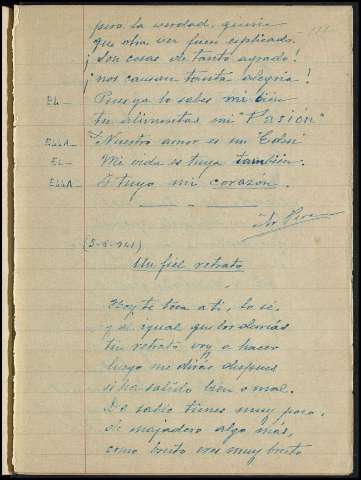 pero la verdad, quisiera
que otra vez fuera explicado.
¡Son cosas de tanto agrado!
¡nos causan tanta alegría!
EL_ Pues ya lo sabes mi bien
tu alimentas mi "Pasión"
ELLA_ Nuestro amor es un
EL_ Mi vida es tuya también.
ELLA_ Y tuyo mi corazón.
(3-6-941)
Un fiel retrato
Hoy te toca a ti, lo sé,
y al igual que los demás
tu retrato voy a hacer
luego me dirás después
si ha salido bien o mal.
De sabio tienes muy poco,
de majadero algo más,
como bruto eres muy bruto